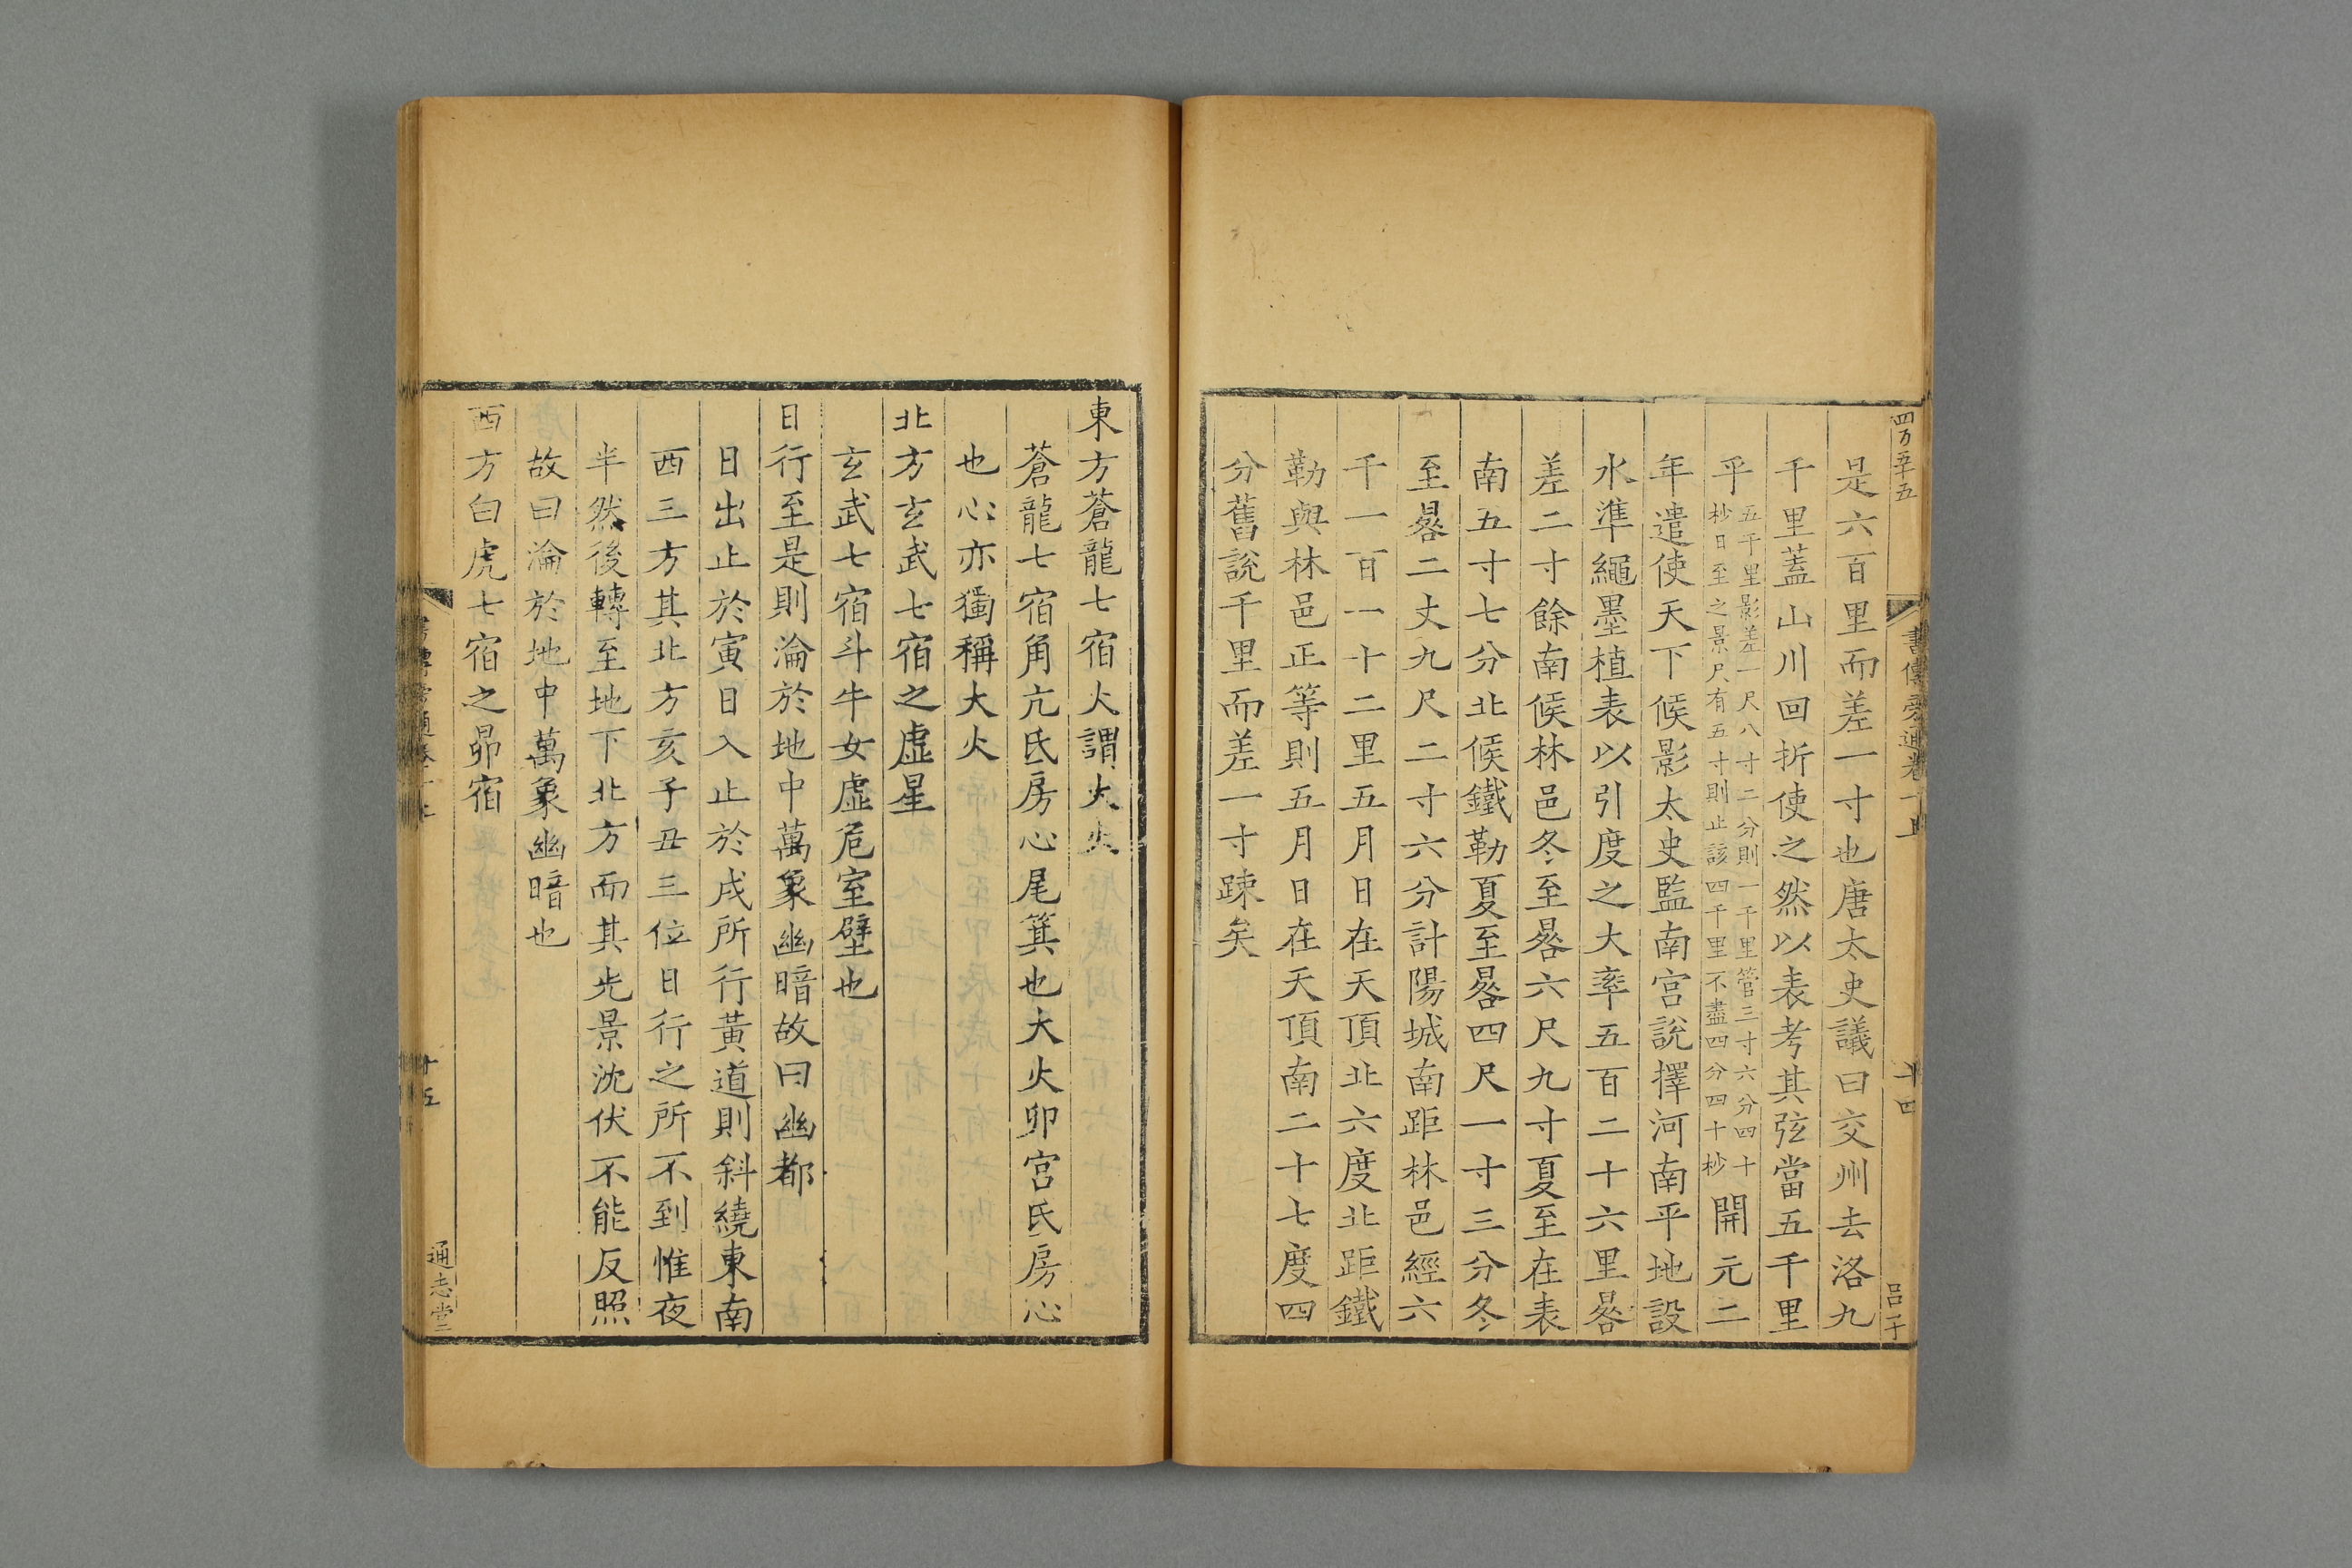 四万五千五
書傳旁通卷一上
十四
呂子
是六百里而差一寸也唐太史議曰交州去洛九
千里蓋山川回折使之然以表考其弦當五千里
乎五千里影差一尺八寸二分則一千里管三寸六分四十
杪日至之景尺有五寸則止該四千里不盡四分四十杪開元二
年遣使天下候影太史監南宮說擇河南平地設
水準繩墨植表以引度之大率五百二十六里晷
差二寸餘南候林邑冬至晷六尺九寸夏至在表
南五寸七分北候鐵勒夏至晷四尺一寸三分冬
至晷二丈九尺二寸六分計陽城南距林邑經六
千一百一十二里五月日在天頂北六度北距鐵
勒與林邑正等則五月日在天頂南二十七度四
分舊說千里而差一寸踈矣
東方蒼龍七宿火謂大火
蒼龍七宿角亢氐房心尾箕也大火卯宮氐房心
也心亦獨稱大火
北方玄武七宿之虛星
玄武七宿斗牛女虛危室壁也
日行至是則淪於地中萬象幽暗故曰幽都
日出止於寅日入止於戌所行黃道則斜繞東南
西三方其北方亥子丑三位日行之所不到惟夜
半然後轉至地下北方而其光景沈伏不能反照
故曰淪於地中萬象幽暗也
西方白虎七宿之昴宿
十五
通志堂